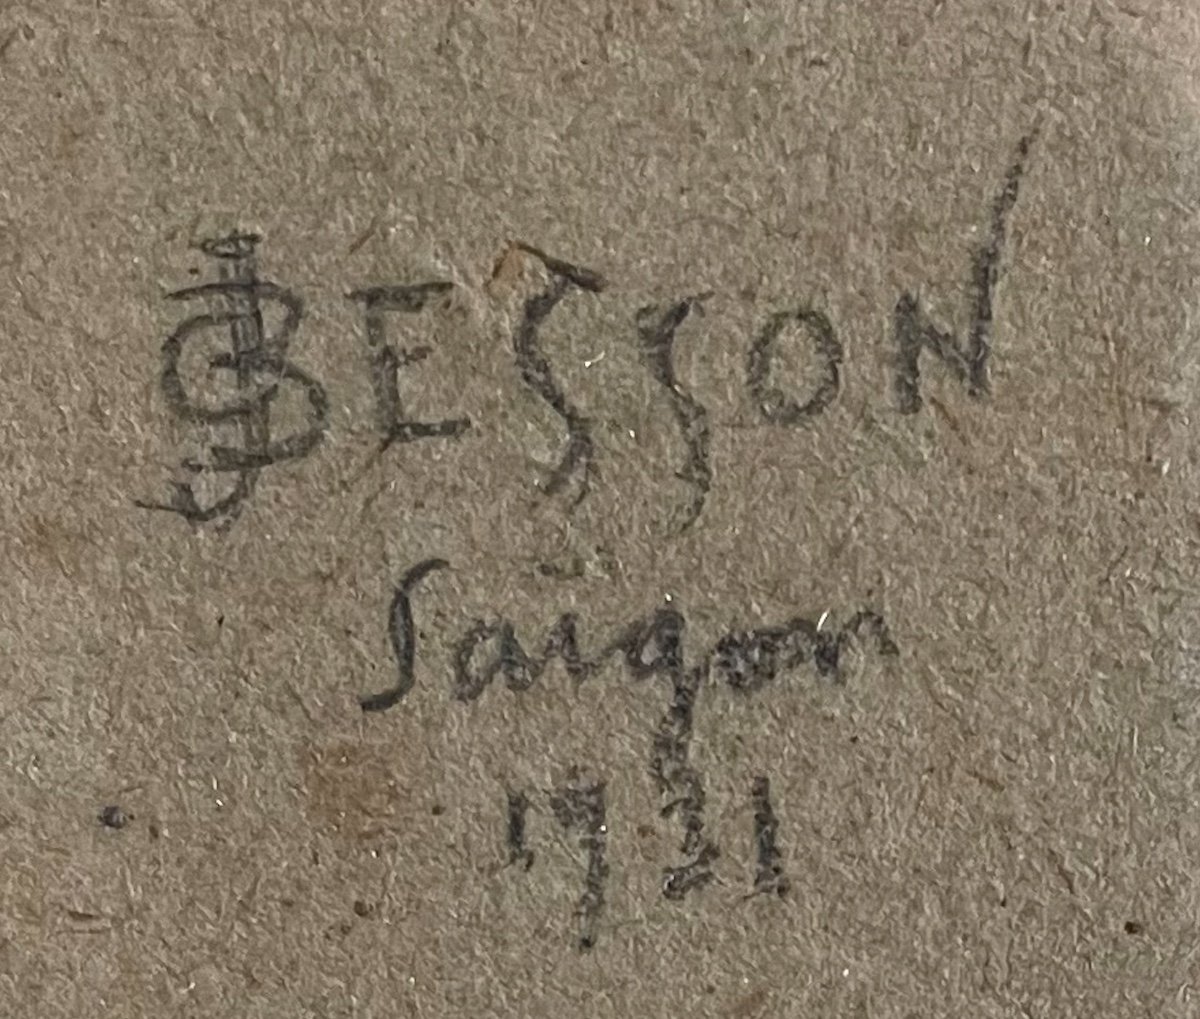 JG BESSON
Saigon
1931